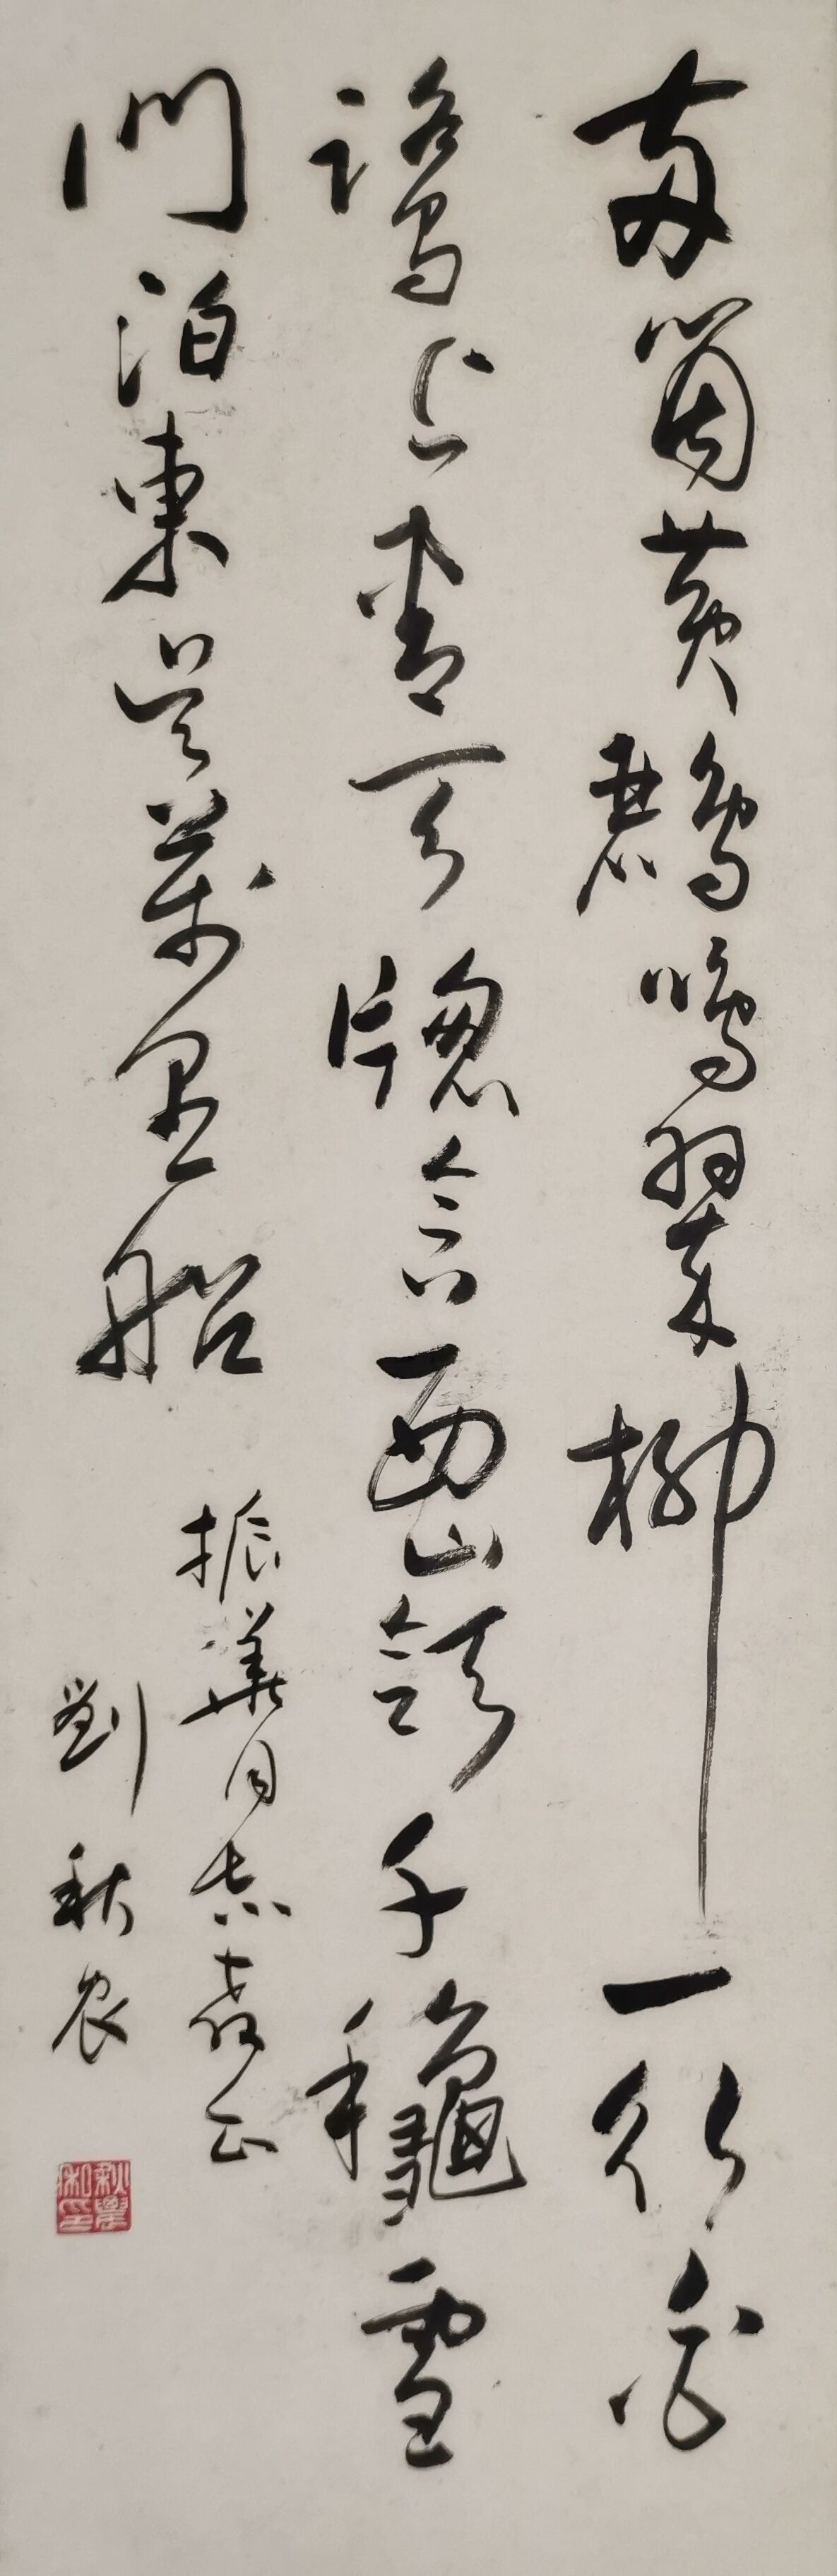 兩箇黃鸝鳴翠柳一行白
鷺上青天牕含西嶺千龝雪
門泊東吳萬里船
振華同志教正
劉秋农
秋農私印